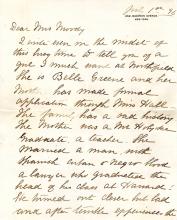 Dear Mrs Moody
I write even in the midst of
this busy time to tell you of a
girl I much want at Northfield
She is Belle Greene and her
Mother has made formal
application through Miss Hall
The family has a sad history
The Mother was a Mt Holyoke
Graduate a teacher. She
married a man with
Spanish Cuban & Negro blood
a lawyer who graduated the
head of his class at Harvard.
He turned out bad
and after terrible experiences the